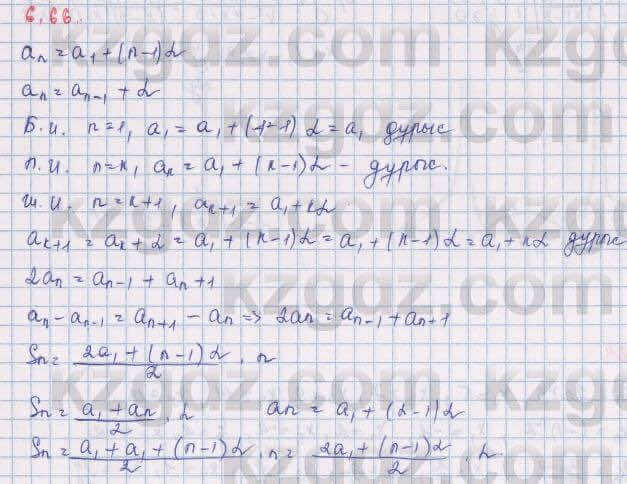 6.66.
aₙ = a₁ + (n-1)d
aₙ = aₙ₋₁ + d
Б.и. n=1, a₁ = a₁ + (1-1) d = a₁ дұрыс
П.и. n=к, aₖ = a₁ + (к-1)d - дұрыс.
ш.и. n=к+1, aₖ₊₁ = a₁+кd
aₖ₊₁ = aₖ + d = a₁ + (к-1)d + d = a₁ + (к-1)d = a₁ + кd дұрыс
2aₙ = aₙ₋₁ + aₙ+1
aₙ - aₙ₋₁ = aₙ₊₁ - aₙ => 2aₙ = aₙ₋₁ + aₙ₊₁
Sₙ = (2a₁ + (n-1)d)/2 · n
Sₙ = (a₁ + aₙ)/2 · n aₙ = a₁ + (d-1)d
Sₙ = (a₁ + a₁ + (n-1)d)/2 · n = (2a₁ + (n-1)d)/2 · n
kzgdz.com